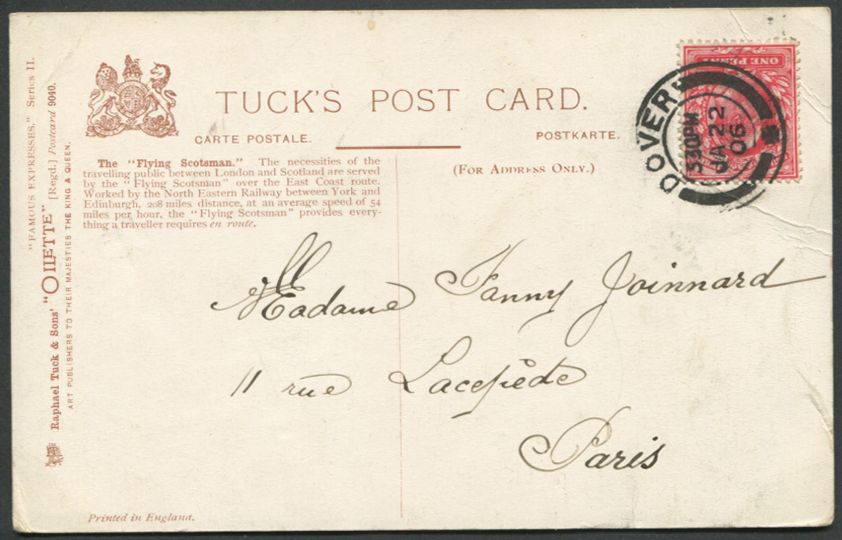 "FAMOUS EXPRESSES." Series II.
Raphael Tuck & Sons' "OILETTE" [Regd.] Postcard 9040.
ART PUBLISHERS TO THEIR MAJESTIES THE KING & QUEEN.
TUCK'S POST CARD.
CARTE POSTALE. POSTKARTE.
The "Flying Scotsman." The necessities of the
travelling public between London and Scotland are served
by the "Flying Scotsman" over the East Coast route.
Worked by the North Eastern Railway between York and
Edinburgh, 208 miles distance, at an average speed of 54
miles per hour, the "Flying Scotsman" provides every-
thing a traveller requires en route.
(FOR ADDRESS ONLY.)
ONE PENNY
DOVER
530PM
JA 22
06
Madame Fanny Joinnard
11 rue Lacepède
Paris
Printed in England.